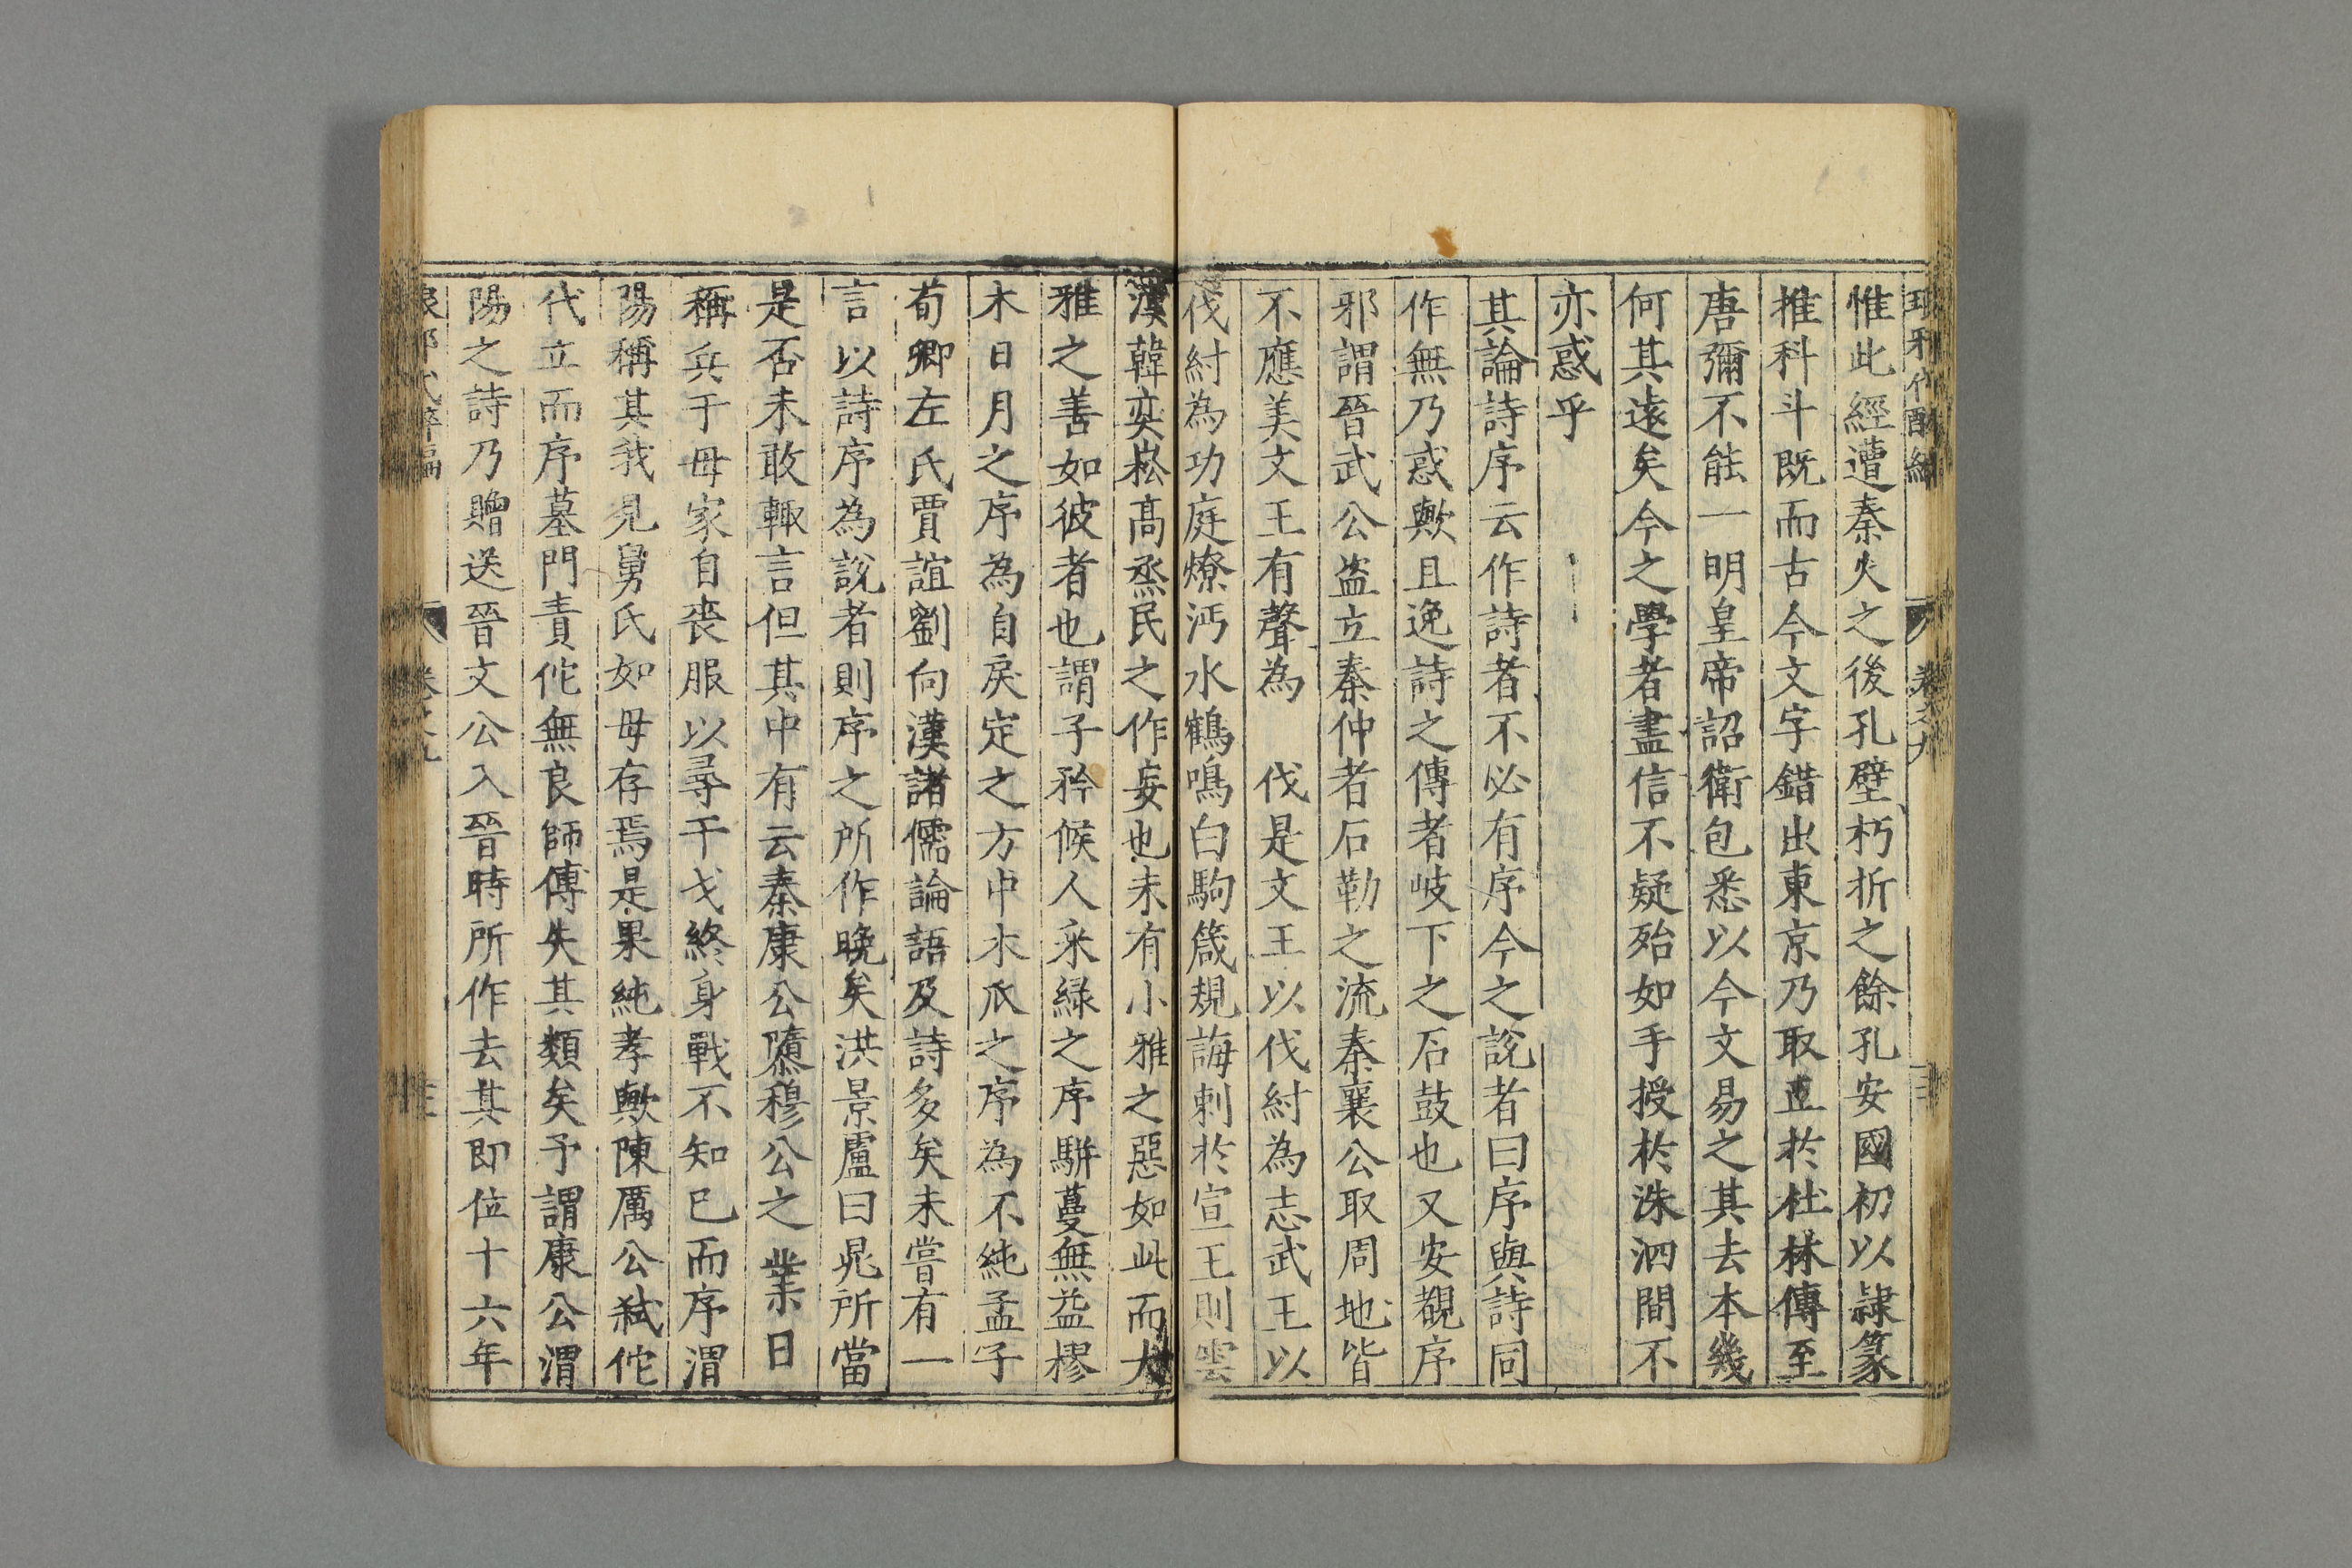 惟此經遭秦火之後孔壁朽折之餘孔安國初以隷篆
推科斗既而古今文字錯出東京乃取正於杜林傳至
唐彌不能一明皇帝詔衛包悉以今文易之其去本幾
何其遠矣今之學者盡信不疑殆如手授於洙泗間不
亦惑乎
其論詩序云作詩者不必有序今之說者曰序與詩同
作無乃惑歟且逸詩之傳者岐下之石鼓也又安覩序
邪謂晉武公盗立秦仲者石勒之流秦襄公取周地皆
不應美文王有聲為 伐是文王以伐紂為志武王以
伐紂為功庭燎沔水鶴鳴白駒箴規誨刺於宣王則雲
漢韓奕崧高烝民之作妄也未有小雅之惡如此而大
雅之善如彼者也謂子矜候人采綠之序駢蔓無益樛
木日月之序為自戾定之方中木瓜之序為不純孟子
荀卿左氏賈誼劉向漢諸儒論語及詩多矣未嘗有一
言以詩序為說者則序之所作晚矣洪景盧曰晁所當
是否未敢輙言但其中有云秦康公隳穆公之業日
稱兵于母家自喪服以尋干戈終身戰不知已而序渭
陽稱其我見舅氏如母存焉是果純孝歟陳厲公弒佗
代立而序墓門責佗無良師傅失其類矣予謂康公渭
陽之詩乃贈送晉文公入晉時所作去其即位十六年
卷之九